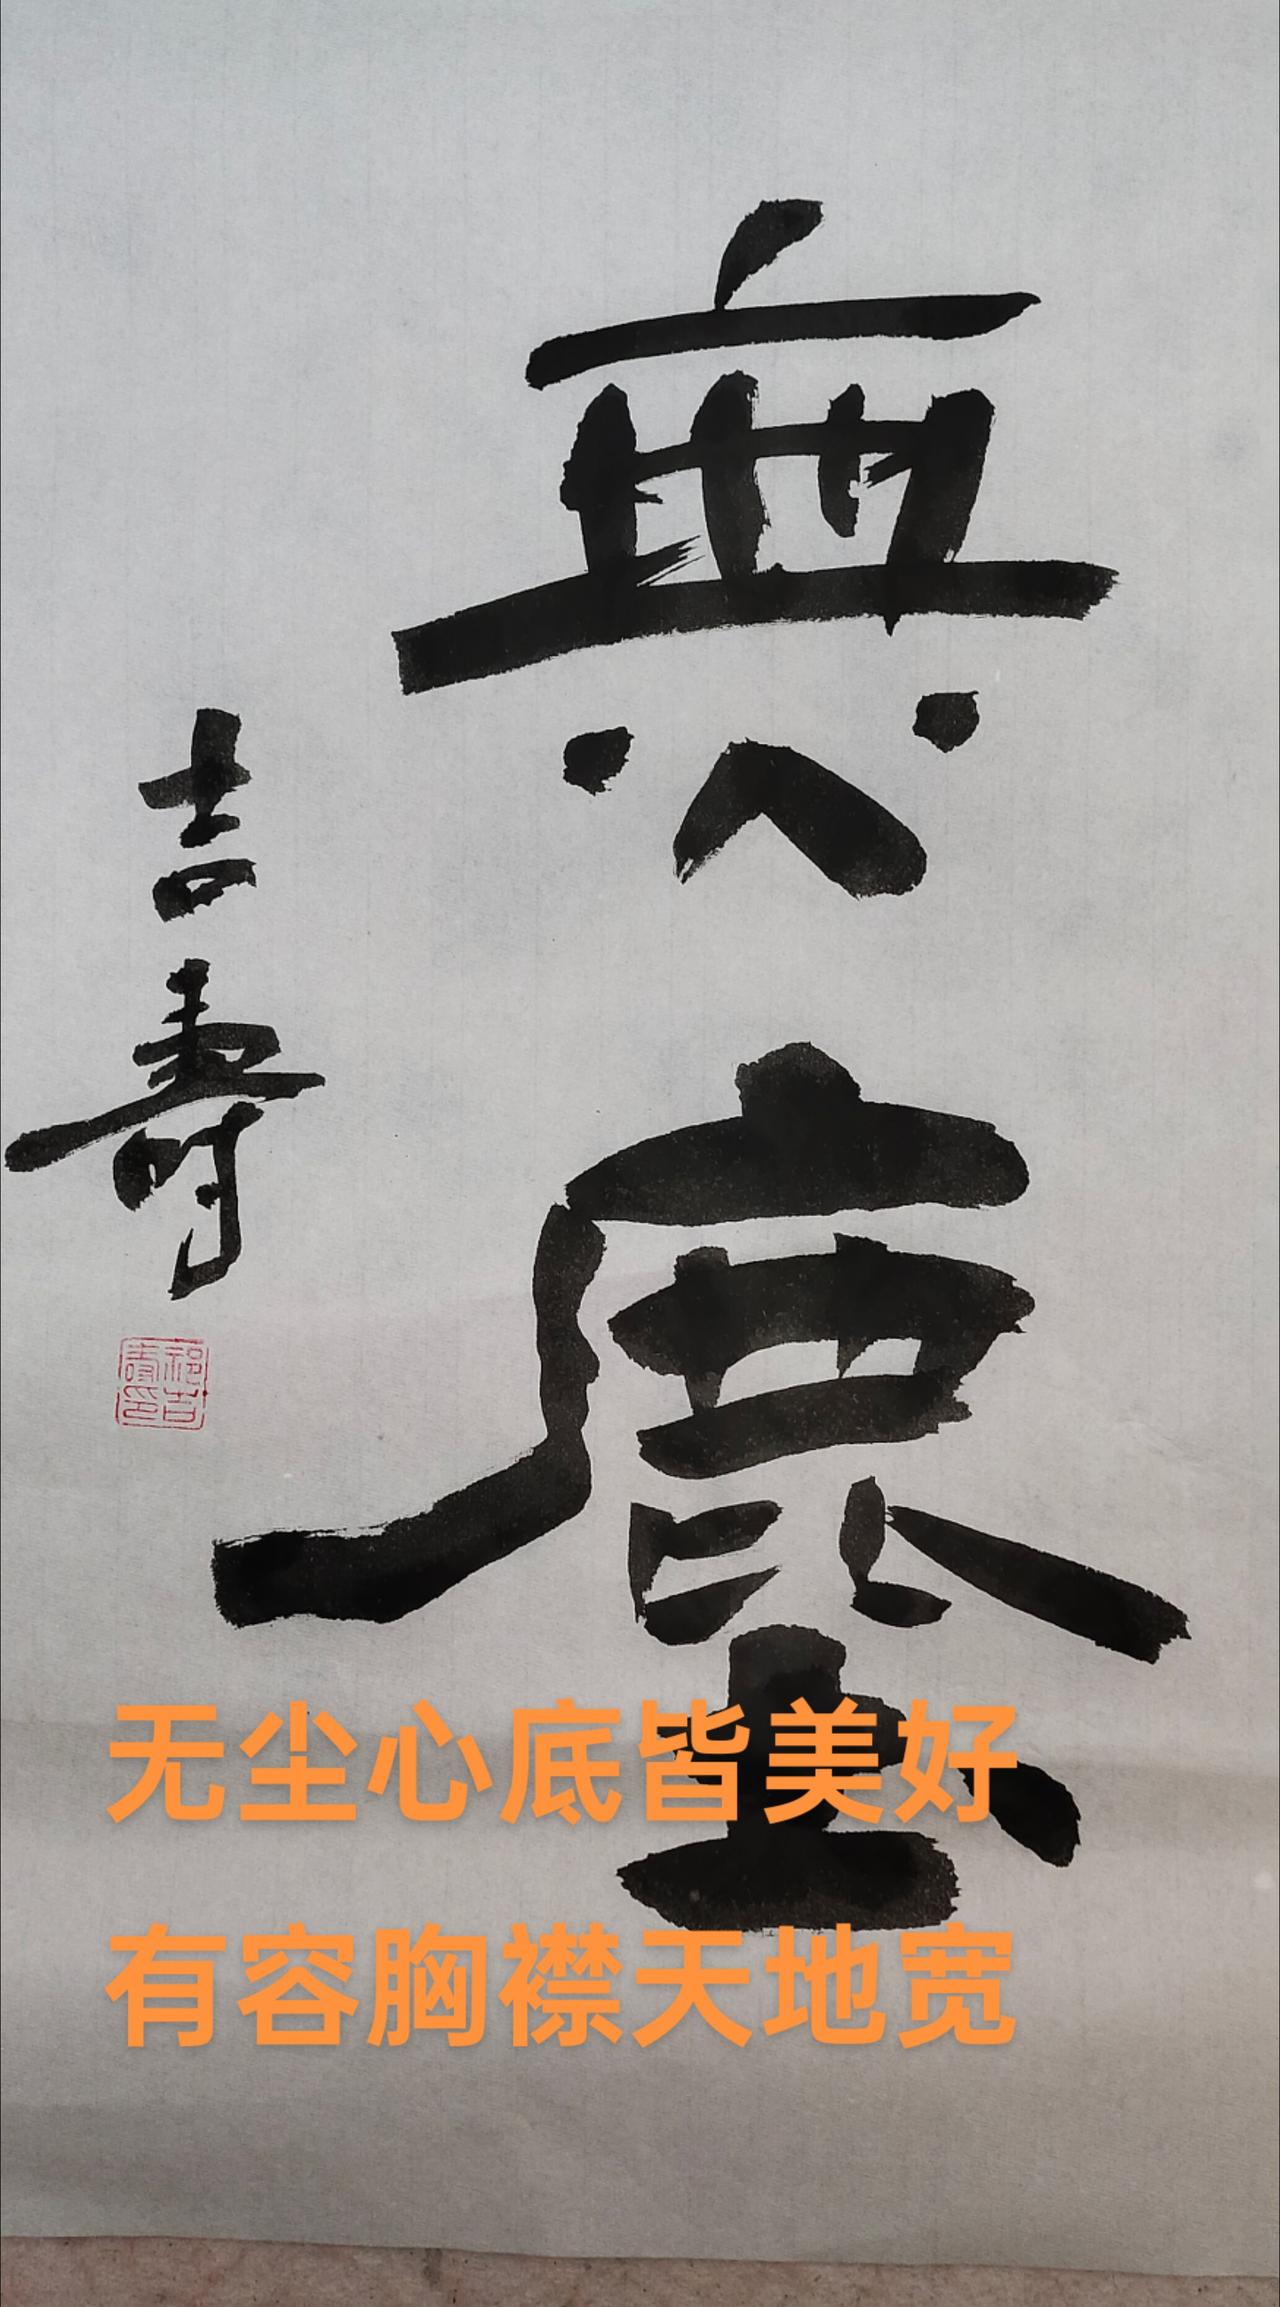 無塵
吉壽
无尘心底皆美好
有容胸襟天地宽